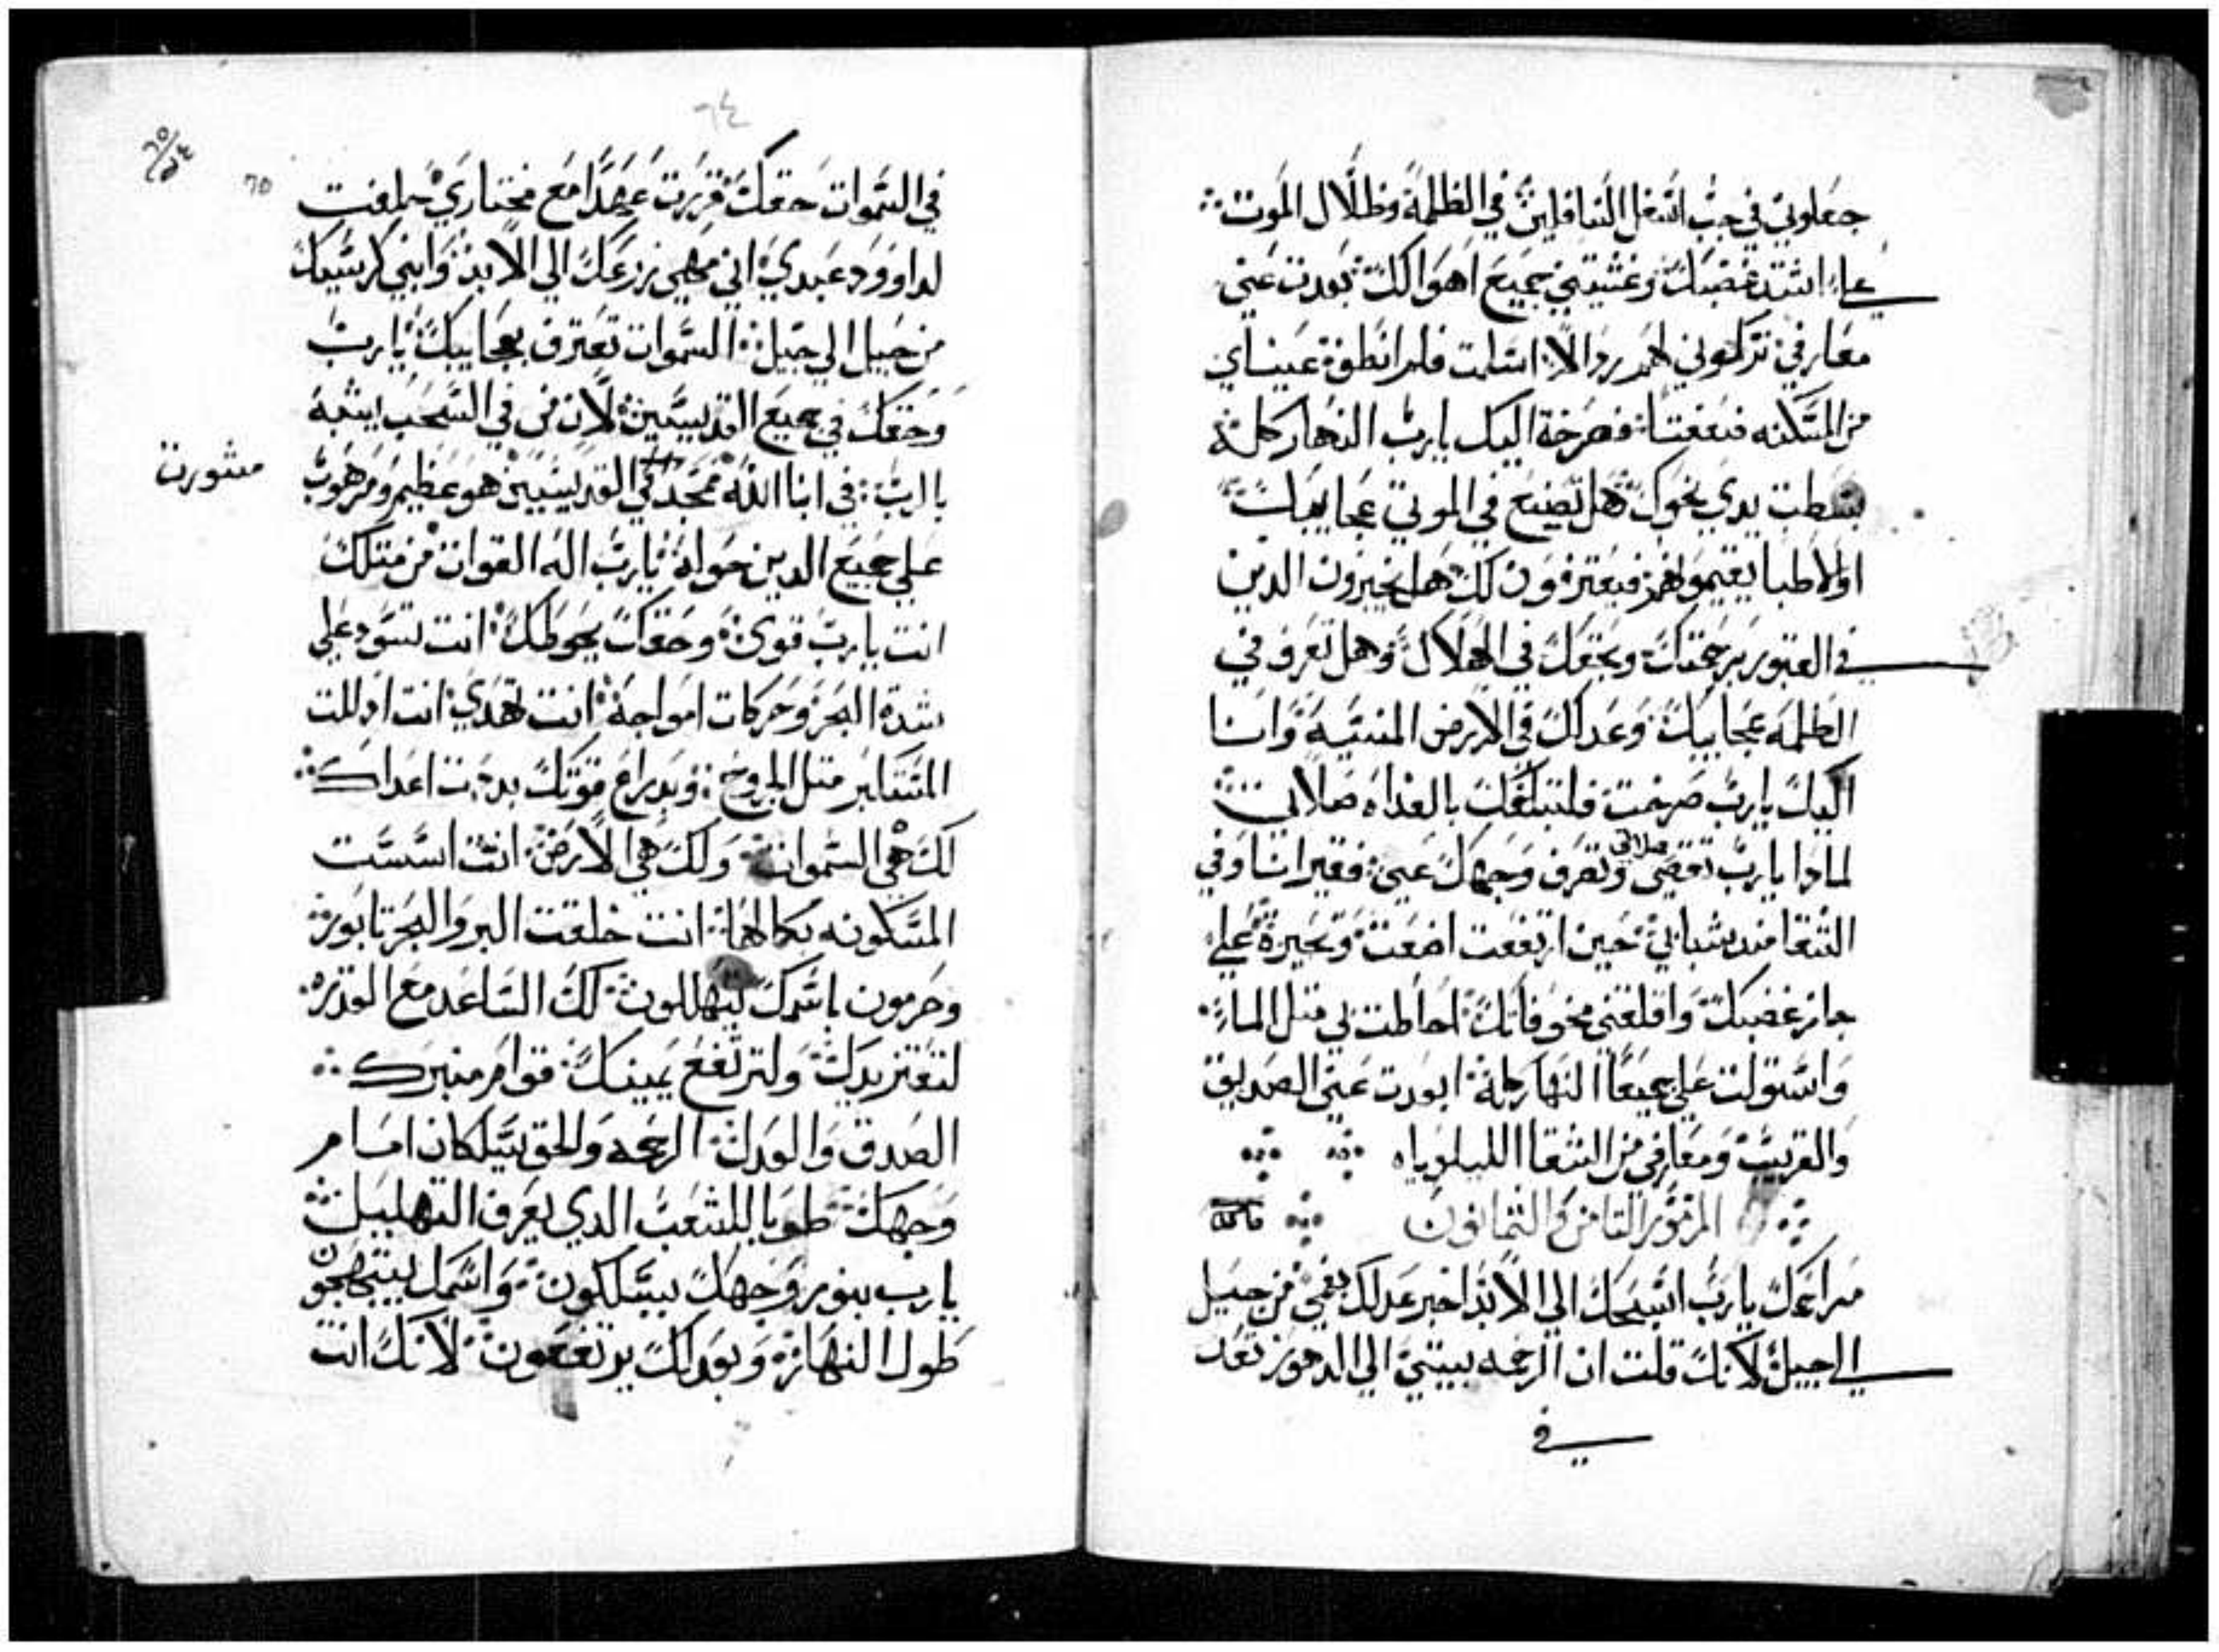 جعلوني في جب اسفل السافلين في الظلمة وظلال الموت
علي اشتد غضبك وغشيتني جميع اهوالك بعدت عني
معارفي تركوني لهم رذالا اسلمت فلم انطق عيناي
من المسكنه ضعفتا فصرخة اليك يارب النهار كله
بسطت يدي نحوك هل تصنع في الموتي عجايبك
او الاطبا يقيمونهم فيعترفون لك هل يخبرون الدين
في القبور برحمتك وبحقك في الهلاك وهل تعرف في
الظلمه عجايبك وعدلك في الارض المنسية وانا
اليك يارب صرخت فلتبلغك بالغداه صلاتي
لمادا يارب تقصي صلاتي وتصرف وجهك عني فقير انا وفي
الشقا مند شبابي حين ارتفعت اضعت وتحيرة علي
جاز غضبك واقلقتني مخوفاتك احاطت بي متل الماء
واستولت علي جميعا النهار كلة ابعدت عني الصديق
والقريب ومعارفي من الشقا الليلوياه
المزمور التامن والتمانون
مراحمك يارب اسبحك الي الابد اخبر عدلك بفمي من جيل
الي جيل لانك قلت ان الرحمه يبتني الي الدهور تعد
في
٦٤
٦٥
في السموات حقك قررت عهدا مع مختاري حلفت
لداوود عبدي اني مهيي زرعك الي الابد وابني كرسيك
من جيل الي جيل السموات تعترف بعجايبك يارب
وحقك في جميع القديسين لان من في السحب يشبه
بالرب في ابنا الله ممجد في القديسين هو عظيم ومرهوب
مشورت
علي جميع الدين حواه يارب اله القوات من متلك
انت يارب قوي وحقك يحوطك انت تسود علي
شدة البحر وحركات امواجة انت تهدي انت ادللت
المتكابر متل الجروح وبدراع قوتك بددت اعداك
لك هي السموات ولك هي الارض انت اسست
المسكونه بكمالها انت خلقت البر والبحر تابور
وحرمون باسمك يتهللون لك الساعد مع القدره
لتعتز يدك ولترتفع يمينك قوام منبرك
الصدق والعدل الرحمه والحق يسلكان امام
وجهك طوبا للشعب الدي يعرف التهليل
يارب بنور وجهك يسلكون وباسمك يبتهجون
طول النهار وبعدلك يرتفعون لانك انت